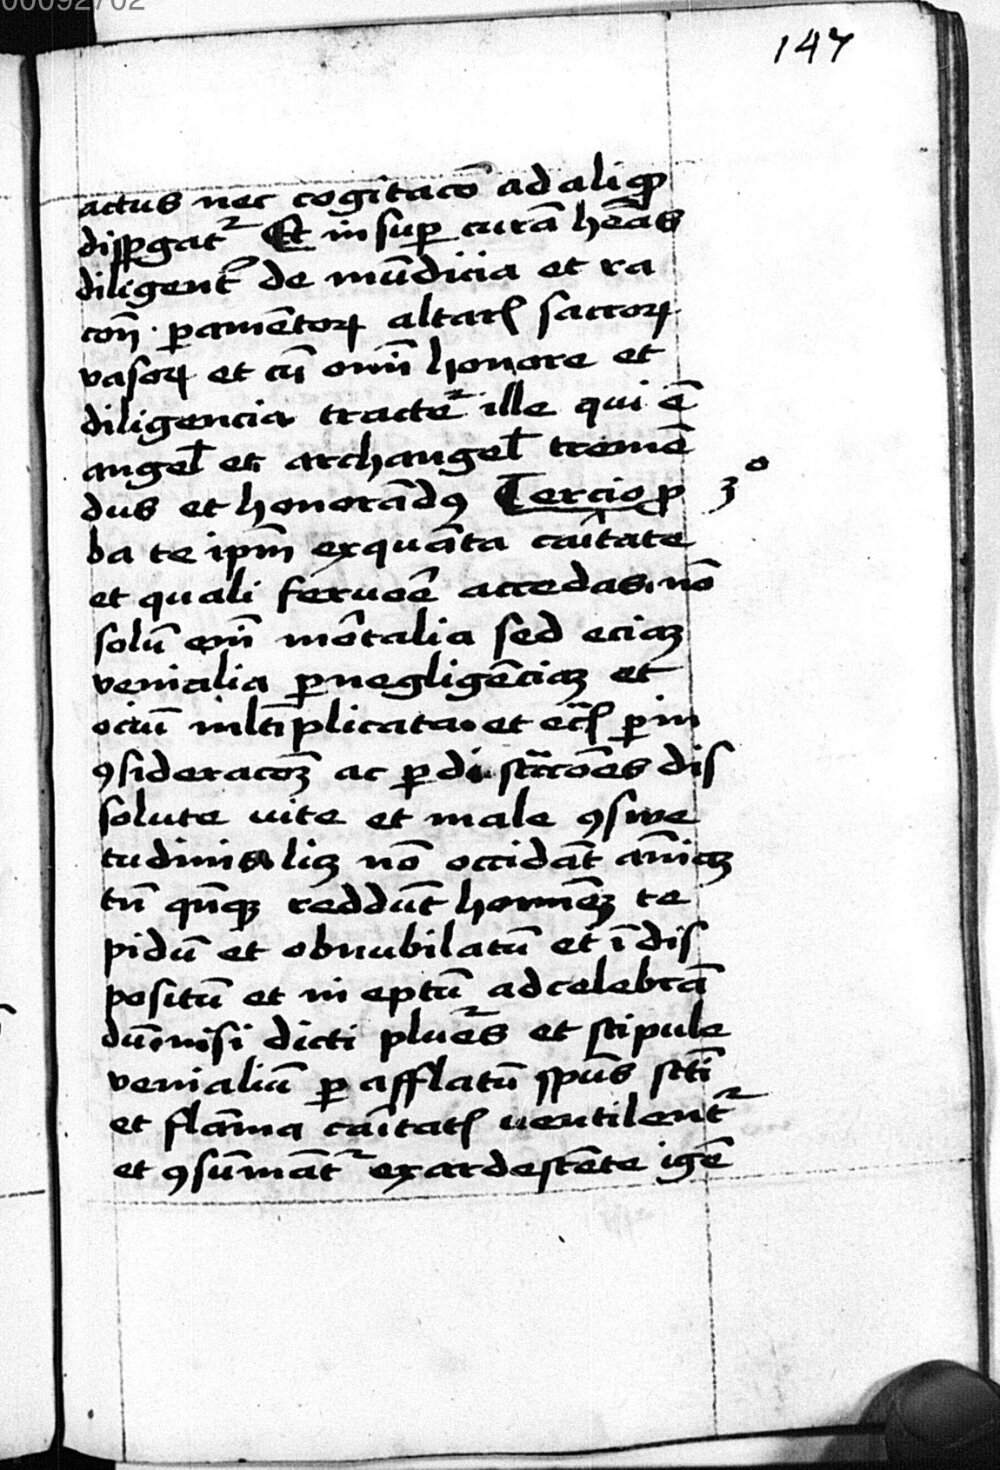 00092702
147
actus nec cogitacō ad aliqꝫ
disꝑgatᷣ Et insuꝑ curā hēas
diligent̄ de mūdicia et ra
coñ · ꝑamētoꝝ altarꝭ sacroꝝ
vasoꝝ et cū omī honore et
diligencia tractetᷣ ille qui ē
angel̄ et archangel̄ tremē
dus et honorādꝰ Tercio ꝓ 3°
ba te ipm̄ ex quāta caītate
et quali feruoē accedas. nō
solū em̄ mōtalia sed eciaꝫ
venialia ꝑ negligēciaꝫ et
ociū ml̄tiplicata et ec̄ꝭ ꝑ in
ꝯsideracōꝫ ac ꝑ distrācōes dis
solute vite et male ꝯswe
tudinis liꝫ nō occidāt aīaꝫ
tn̄ qn̄qꝫ reddūt homiēꝫ te
pidū et obnubilatū et īdis
positū et in eptū ad celebrā
dū. nisi dicti pluēs et stipule
venialiū ꝑ afflatū spūs sctī
et flāma caītatꝭ uentilentᷣ
et ꝯsūmātᷣ exardescēte igē